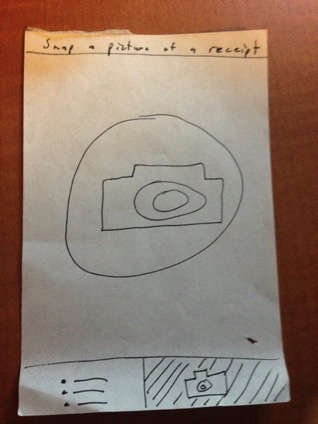 Snap a picture of a receipt